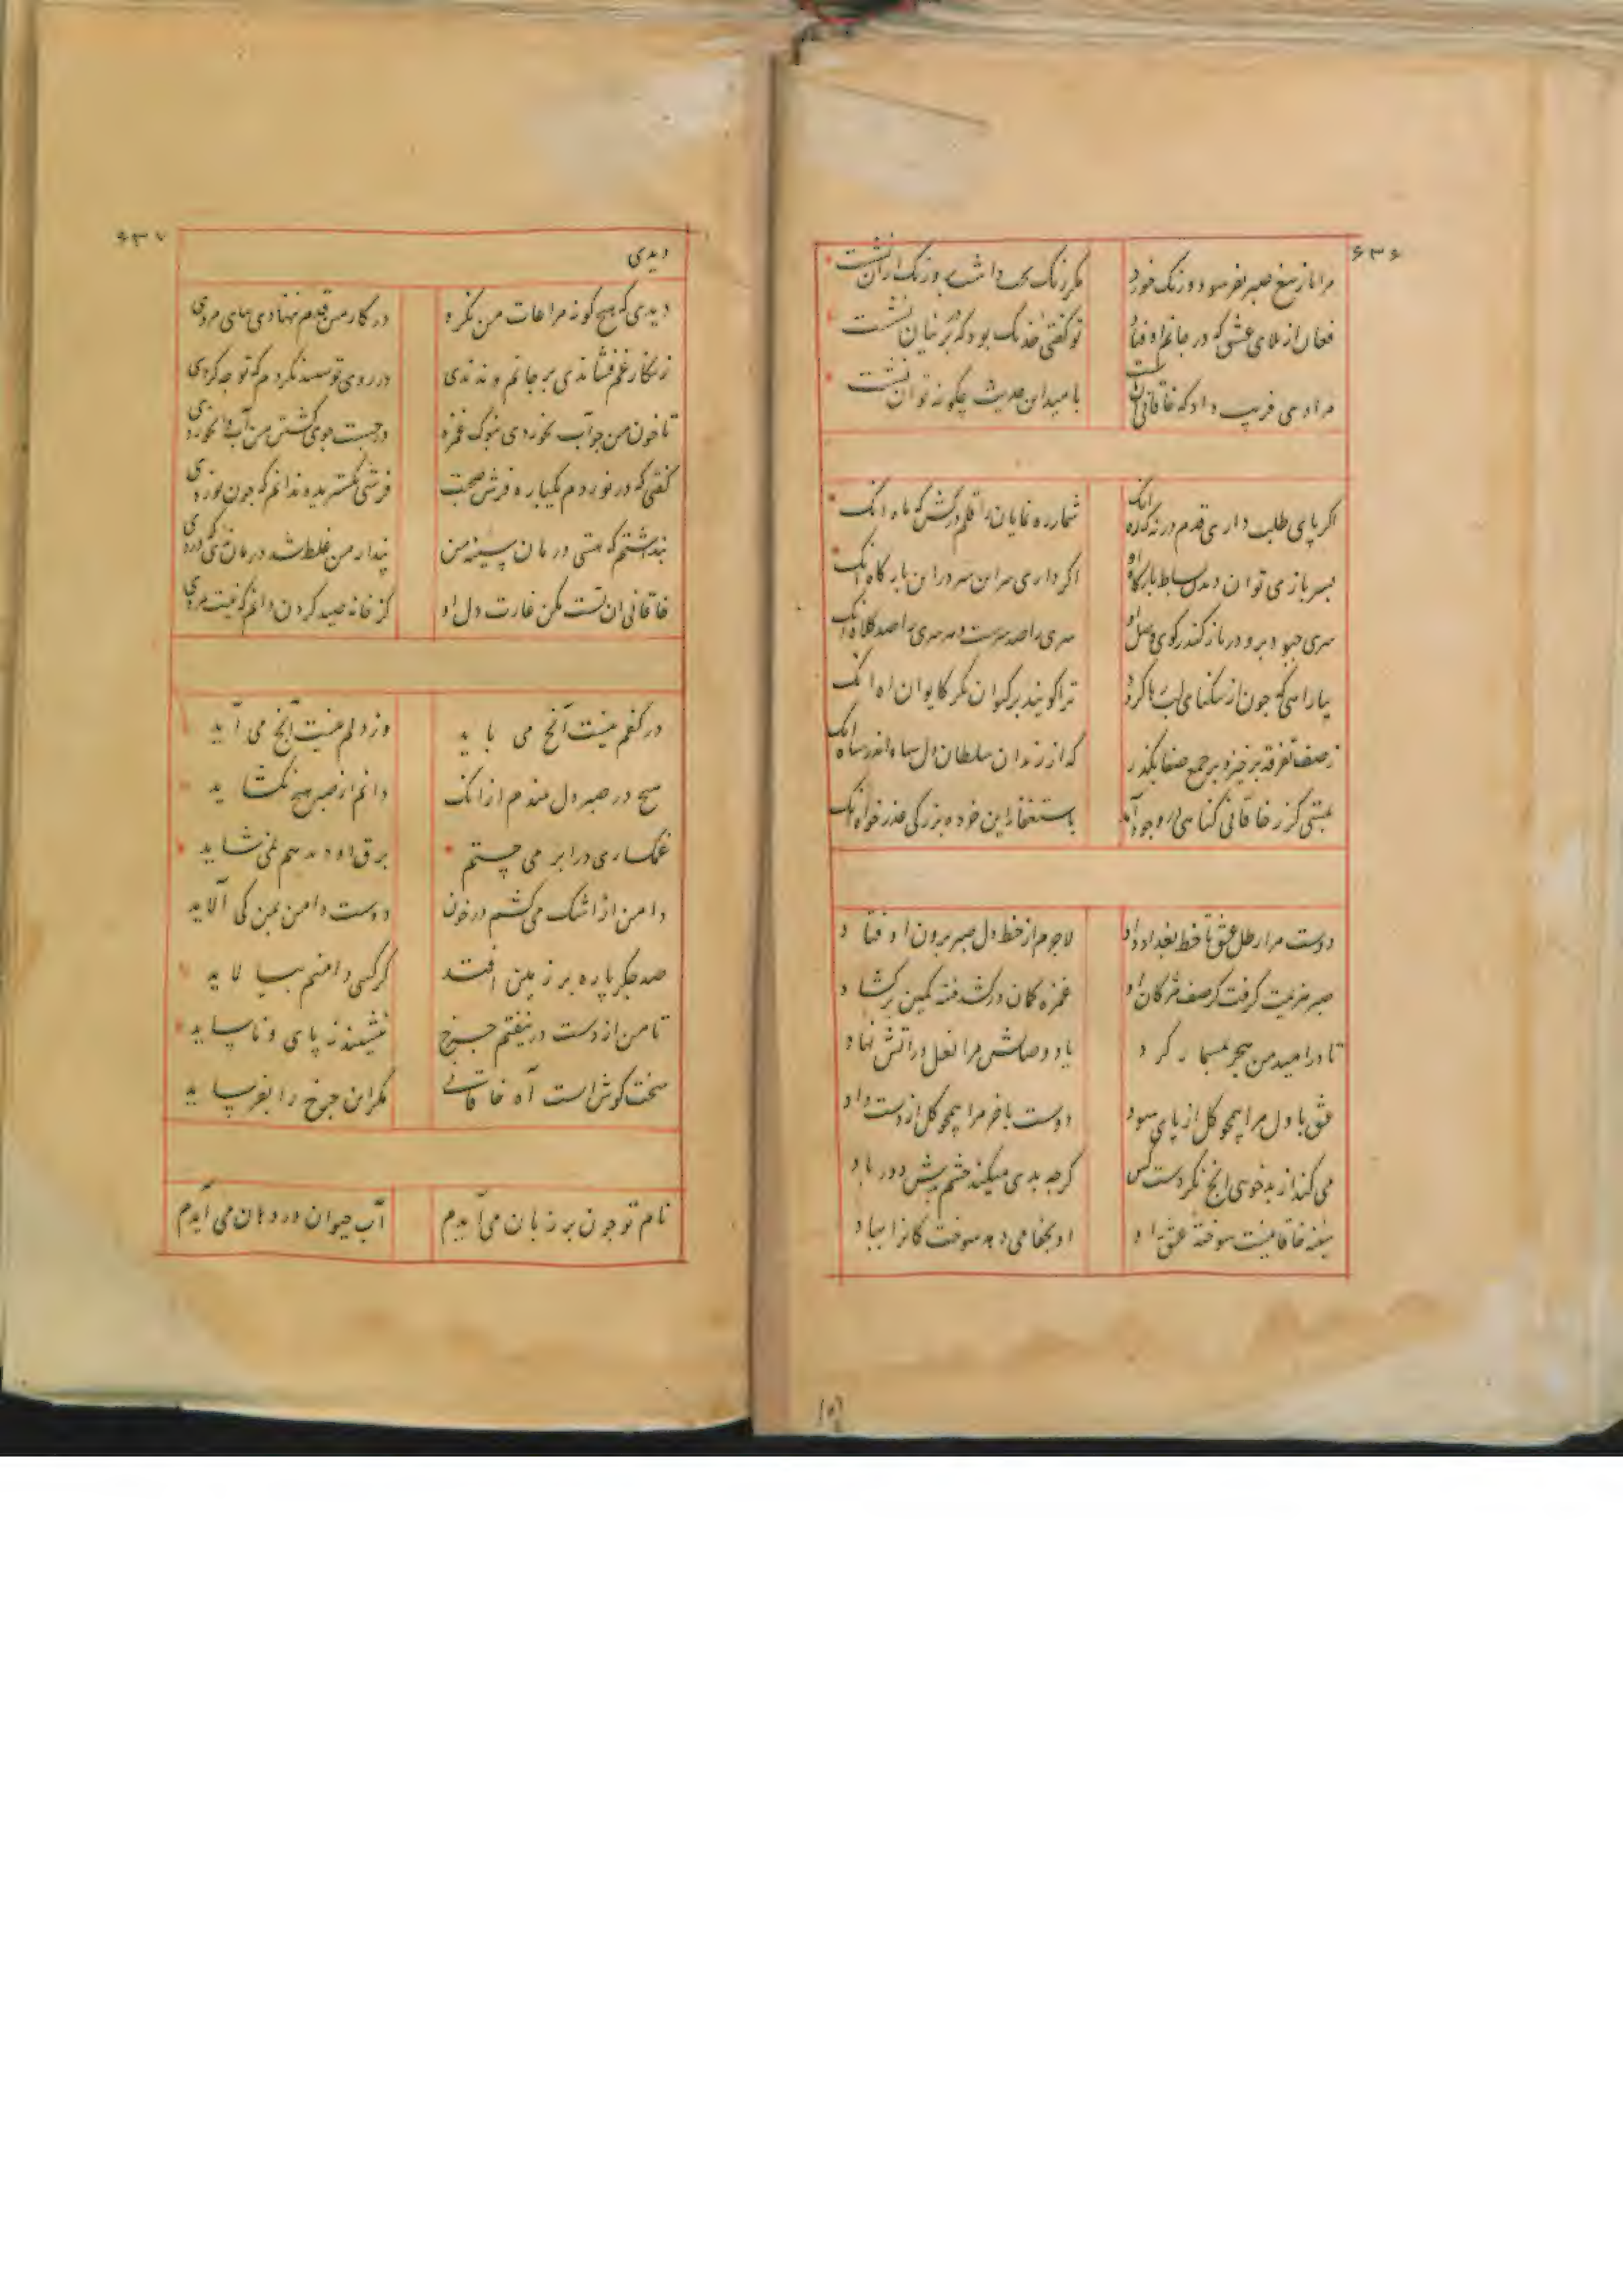 ۶۳۶
مرا ناز تیغ صبر بفرسود و زنگ خورد مگر زنگ داشت و زنگ ازان نشست
فغان از بلای عشق که در جانم اوفتاد تو گفتی خدنگ بود که بر پرنیان نشست
مرا دمی فریب داد که خاقانی با امید این حدیث چگونه توان نشست
اگر پای طلب داری قدم در نه که راه اینک شمار ره نمایان را قلم درکش که ماه اینک
بسر باز می توان دیدن بساط بارگاه او اگر داری سر این سر در این بارگاه اینک
سری جو در باز کند کوی وصل او سری را صد سرست و هر سری را صد کلاه اینک
بیارامی که چون از تنگنای لب ترا گویند بر کیوان نگر کایوان اینک
ز صف تفرقه برخیز و بر جمع صفا بگذر که از رندان سلطان دل سپاه اندر سپاه اینک
کز ز خاقانی گناهی در وجود آمد باستغفار این خرده بزرگی عذر خواه اینک
دوست مرا رطل عشق تا خط بغداد داد لاجرم از خط دل صبر برون اوفتاد
صبر هزیمت گرفت کز صف مژگان او غمزه کمان درکشید فتنه کمین برگشاد
تا در امید من هجر بمسمار کرد یاد وصالش مرا نعل در آتش نهاد
عشق با ول مرا همچو گل از پای سود دوست باخر مرا همچو گل از دست داد
می کند از بدخوی انچ نکردست کس گرچه بدی میکند چشم بدش دور باد
سینه خاقانیست سوخته عشق او او بجفا می دهد سوختگانرا بباد
۶۳۷
دیدی
دیدی که هیچ گونه مراعات من نکرد در کار من قدم ننهادی بپای مردی
زنگار غم فشاندی بر جانم و ندیدی در روی تو سپید نکردم که تو چه کردی
تا خون من چو آب نخوردی بنوک غمزه در جست جوی کشتن من آب وا نخوردی
گفتی که در نوردم یکباره فرش صحبت فرشی نگستریده ندانم که چون نوردی
پنداشتم که هستی درمان سینه من پندار من غلط شد درمان نه ای که دردی
خاقانی ان تست مکن غارت دل او کز خانه صید کردن دانم که نیست مردی
در کفم نیست آنچ می باید وز دلم نیست آنچ می آید
هیچ در صبر دل نبندم ازانک دانم از صبر هیچ نگشاید
غمگساری در ابر می جستم برق او هم نمی شاید
دامن از اشک می کشم در خون دوست دامن بمن کی آلاید
صد جگر پاره بر زمین افتد گر کسی دامنم بپالاید
تا من از دست درنیفتم چرخ ننشیند ز پای و ناساید
سخت کوش است آه خاقانی مگر این چرخ را بفرساید
نام تو چون بر زبان می آیدم آب حیوان در دهان می آیدم